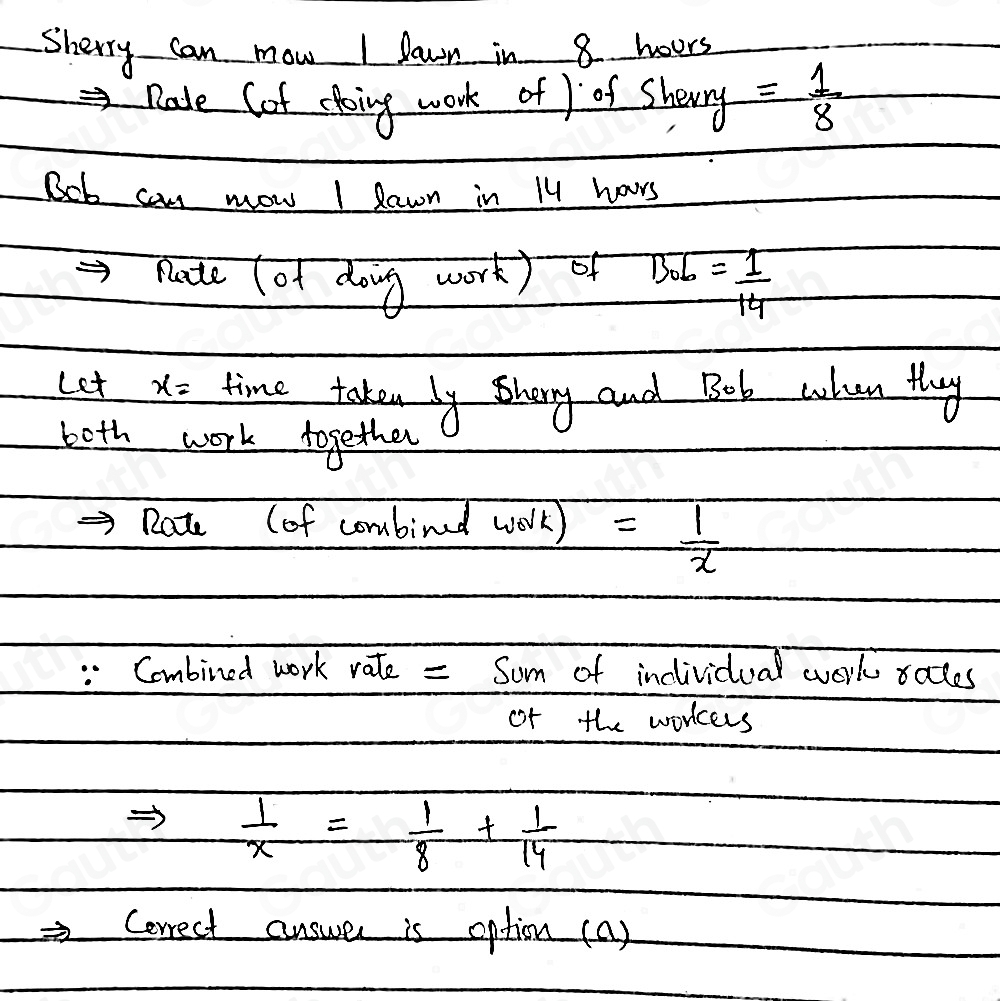 Sherry can mow 1 lawn in 8 hours
⇒ Rate (of doing work of ) of Sherry = 1/8
Bob can mow 1 lawn in 14 hours
⇒ Rate (of doing work) of Bob = 1/14
Let x = time taken by Sherry and Bob when they
both work together
⇒ Rate (of combined work) = 1/x
∵ Combined work rate = Sum of individual work rates
of the workers
⇒ 1/x = 1/8 + 1/14
⇒ Correct answer is option (a)
Gauth